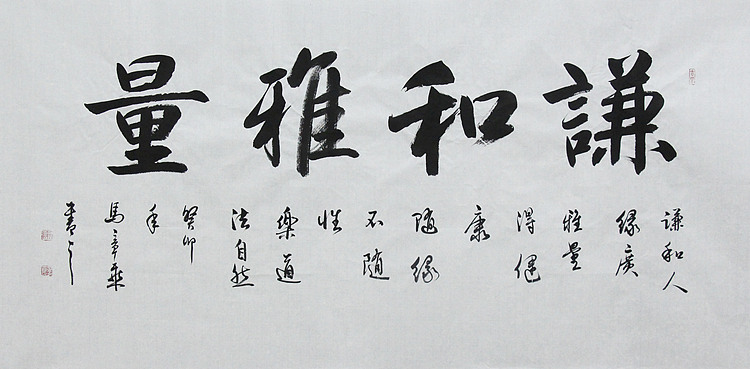 謙和雅量
謙和人
緣廣
雅量
得健
康
隨緣
不隨
性
樂道
法自然
癸卯
年
馬章乘
書之